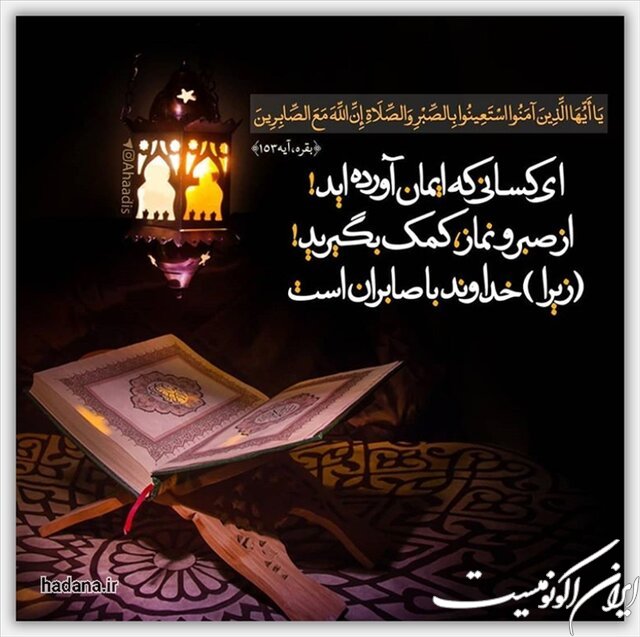 يَا أَيُّهَا الَّذِينَ آمَنُوا اسْتَعِينُوا بِالصَّبْرِ وَالصَّلَاةِ إِنَّ اللَّهَ مَعَ الصَّابِرِينَ
﴿بقره، آیه ۱۵۳﴾
ای کسانی که ایمان آورده اید!
از صبر و نماز، کمک بگیرید!
(زیرا) خداوند با صابران است
@Ahaadis
hadana.ir
ایران اکونومیست